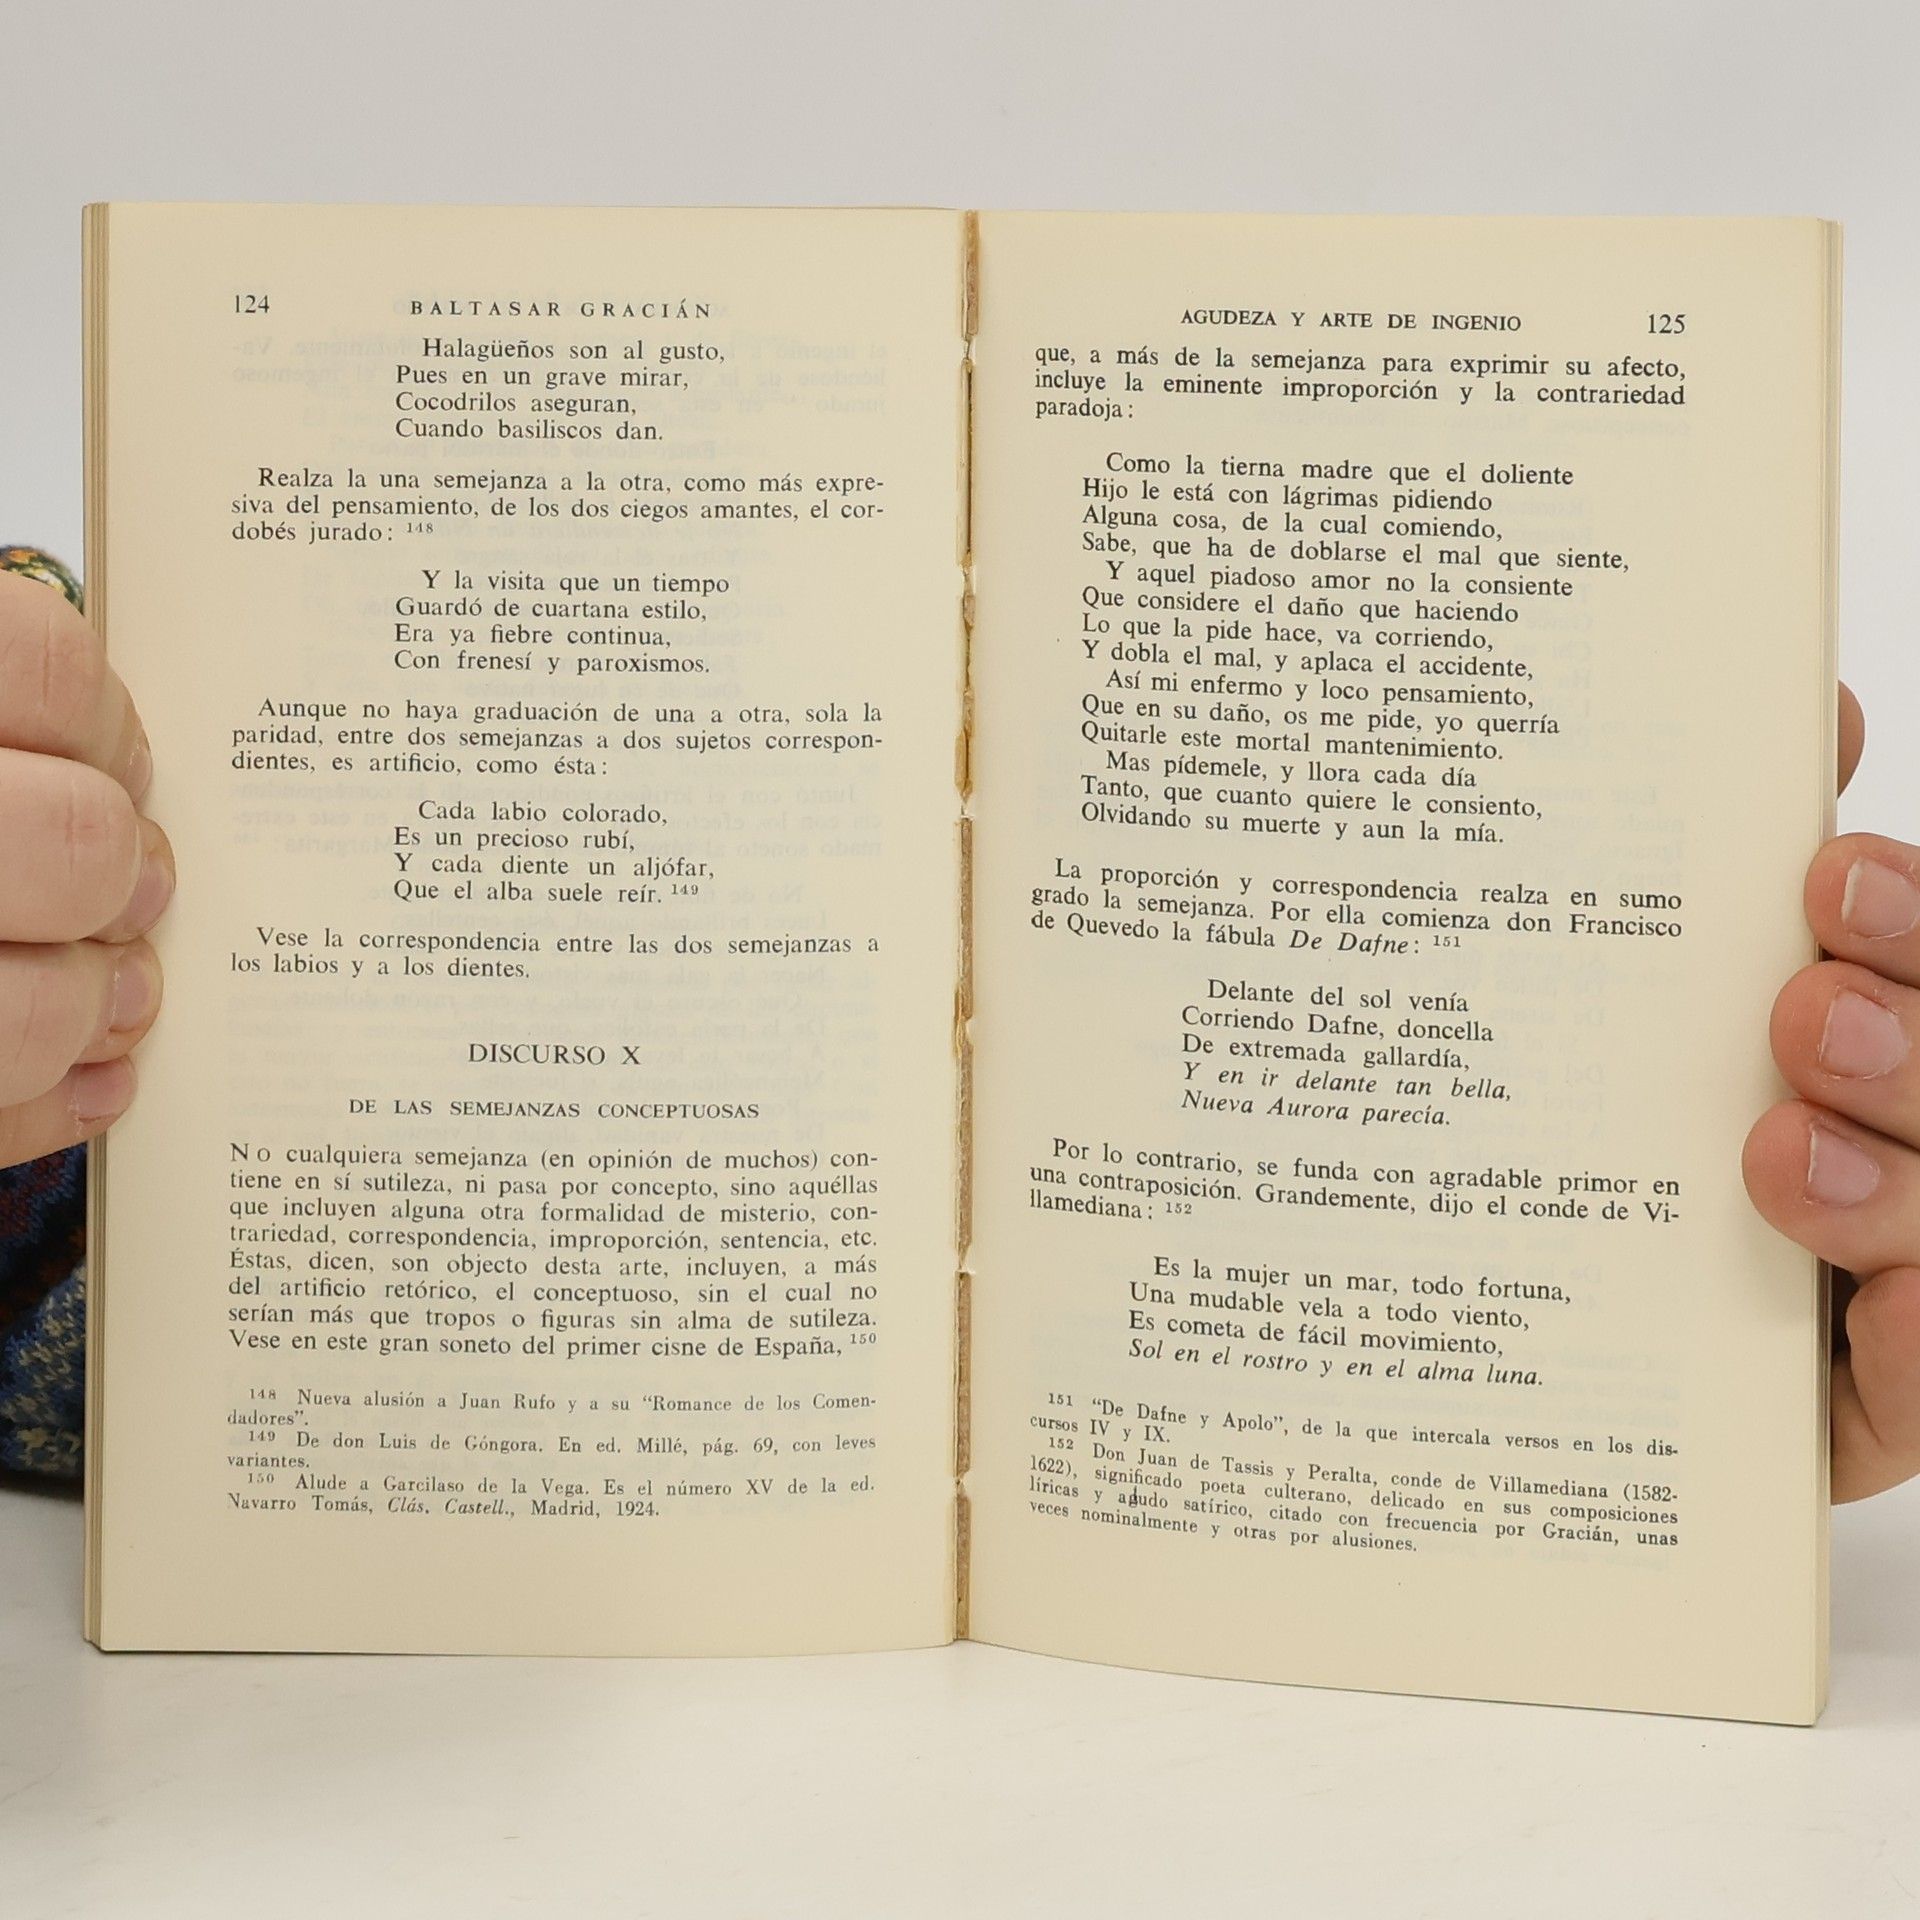 124
BALTASAR GRACIÁN
Halagüeños son al gusto,
Pues en un grave mirar,
Cocodrilos aseguran,
Cuando basiliscos dan.
Realza la una semejanza a la otra, como más expre-
siva del pensamiento, de los dos ciegos amantes, el cor-
dobés jurado: 148
Y la visita que un tiempo
Guardó de cuartana estilo,
Era ya fiebre continua,
Con frenesí y paroxismos.
Aunque no haya graduación de una a otra, sola la
paridad, entre dos semejanzas a dos sujetos correspon-
dientes, es artificio, como ésta:
Cada labio colorado,
Es un precioso rubí,
Y cada diente un aljófar,
Que el alba suele reír. 149
Vese la correspondencia entre las dos semejanzas a
los labios y a los dientes.
DISCURSO X
DE LAS SEMEJANZAS CONCEPTUOSAS
No cualquiera semejanza (en opinión de muchos) con-
tiene en sí sutileza, ni pasa por concepto, sino aquéllas
que incluyen alguna otra formalidad de misterio, con-
trariedad, correspondencia, improporción, sentencia, etc.
Éstas, dicen, son objecto desta arte, incluyen, a más
del artificio retórico, el conceptuoso, sin el cual no
serían más que tropos o figuras sin alma de sutileza.
Vese en este gran soneto del primer cisne de España, 150
148 Nueva alusión a Juan Rufo y a su “Romance de los Comen-
dadores”.
149 De don Luis de Góngora. En ed. Millé, pág. 69, con leves
variantes.
150 Alude a Garcilaso de la Vega. Es el número XV de la ed.
Navarro Tomás, Clás. Castell., Madrid, 1924.
AGUDEZA Y ARTE DE INGENIO
125
que, a más de la semejanza para exprimir su afecto,
incluye la eminente improporción y la contrariedad
paradoja:
Como la tierna madre que el doliente
Hijo le está con lágrimas pidiendo
Alguna cosa, de la cual comiendo,
Sabe, que ha de doblarse el mal que siente,
Y aquel piadoso amor no la consiente
Que considere el daño que haciendo
Lo que la pide hace, va corriendo,
Y dobla el mal, y aplaca el accidente,
Así mi enfermo y loco pensamiento,
Que en su daño, os me pide, yo querría
Quitarle este mortal mantenimiento.
Mas pídemele, y llora cada día
Tanto, que cuanto quiere le consiento,
Olvidando su muerte y aun la mía.
La proporción y correspondencia realza en sumo
grado la semejanza. Por ella comienza don Francisco
de Quevedo la fábula De Dafne: 151
Delante del sol venía
Corriendo Dafne, doncella
De extremada gallardía,
Y en ir delante tan bella,
Nueva Aurora parecía.
Por lo contrario, se funda con agradable primor en
una contraposición. Grandemente, dijo el conde de Vi-
llamediana: 152
Es la mujer un mar, todo fortuna,
Una mudable vela a todo viento,
Es cometa de fácil movimiento,
Sol en el rostro y en el alma luna.
151 “De Dafne y Apolo”, de la que intercala versos en los dis-
cursos IV y IX.
152 Don Juan de Tassis y Peralta, conde de Villamediana (1582-
1622), significado poeta culterano, delicado en sus composiciones
líricas y agudo satírico, citado con frecuencia por Gracián, unas
veces nominalmente y otras por alusiones.